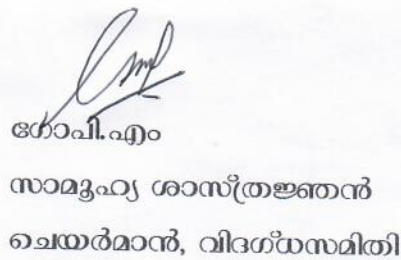 ഗോപി.എം
സാമൂഹ്യ ശാസ്ത്രജ്ഞൻ
ചെയർമാൻ, വിദഗ്ധസമിതി